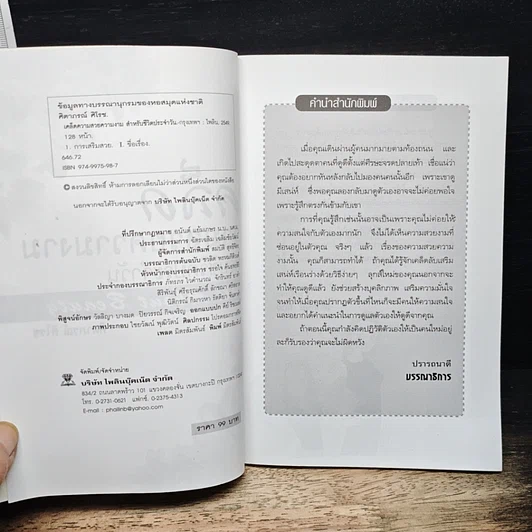 ข้อมูลทางบรรณานุกรมของหอสมุดแห่งชาติ
ศิตาภรณ์ ศิโรช.
เคล็ดความสวยความงาม สำหรับชีวิตประจำวัน-กรุงเทพฯ : ไพลิน, 2546
128 หน้า.
1. การเสริมสวย. I. ชื่อเรื่อง.
646.72
ISBN 974-9975-98-7
© สงวนลิขสิทธิ์ ห้ามการลอกเลียนไม่ว่าส่วนหนึ่งส่วนใดของหนังสือ
นอกจากจะได้รับอนุญาตจาก บริษัท ไพลินบุ๊คเน็ต จำกัด
ที่ปรึกษากฎหมาย
ประธานกรรมการ
ผู้จัดการสำนักพิมพ์
บรรณาธิการต้นฉบับ
หัวหน้ากองบรรณาธิการ
กองบรรณาธิการ
พิสูจน์อักษร ออกแบบปก
ภาพประกอบ ไชยวัฒน์ ศิลปกรรม
เพลต มิตรสัมพันธ์ พิมพ์ มิตรสัมพันธ์
จัดพิมพ์/จัดจำหน่าย
บริษัท ไพลินบุ๊คเน็ต จำกัด
834/2 ถนนลาดพร้าว 101 แขวงคลองจั่น เขตบางกะปิ กรุงเทพฯ
โทร. 0-2731-0621 แฟกซ์. 0-2375-4313
E-mail : phalinb@yahoo.com
ราคา 99 บาท
คำนำสำนักพิมพ์
เมื่อคุณเดินผ่านผู้คนมากมายตามท้องถนน และ
เกิดไปสะดุดตาคนที่ดูดีตั้งแต่ศีรษะจรดปลายเท้า เชื่อแน่ว่า
คุณต้องอยากหันหลังกลับไปมองคนคนนั้นอีก เพราะเขาดู
มีเสน่ห์ ซึ่งพอคุณลองกลับมาดูตัวเองอาจจะไม่ค่อยพอใจ
เพราะรู้สึกตรงกันข้ามกับเขา
การที่คุณรู้สึกเช่นนั้นอาจเป็นเพราะคุณไม่ค่อยให้
ความสนใจกับตัวเองมากนัก จึงไม่ได้เห็นความสวยงามที่
ซ่อนอยู่ในตัวคุณ จริงๆ แล้ว เรื่องของความสวยความงาม
นั้น คุณก็สามารถทำได้ ถ้าคุณได้รู้จักเคล็ดลับเสริม
เสน่ห์เรือนร่างด้วยวิธีง่ายๆ ลุกดีไหมของคุณนอกจากจะ
ทำให้คุณดูดีแล้ว ยังช่วยสร้างบุคลิกภาพ เสริมความมั่นใจ
จนทำให้เมื่อคุณปรากฏตัวขึ้นที่ไหนก็จะมีคนให้ความสนใจ
และอยากได้คำแนะนำในการดูแลตัวเองให้ดูดีจากคุณ
ถ้าตอนนี้คุณกำลังคิดปฏิวัติตัวเองให้เป็นคนใหม่อยู่
ละก็รับรองว่าคุณจะไม่ผิดหวัง
ปรารถนาดี
บรรณาธิการ